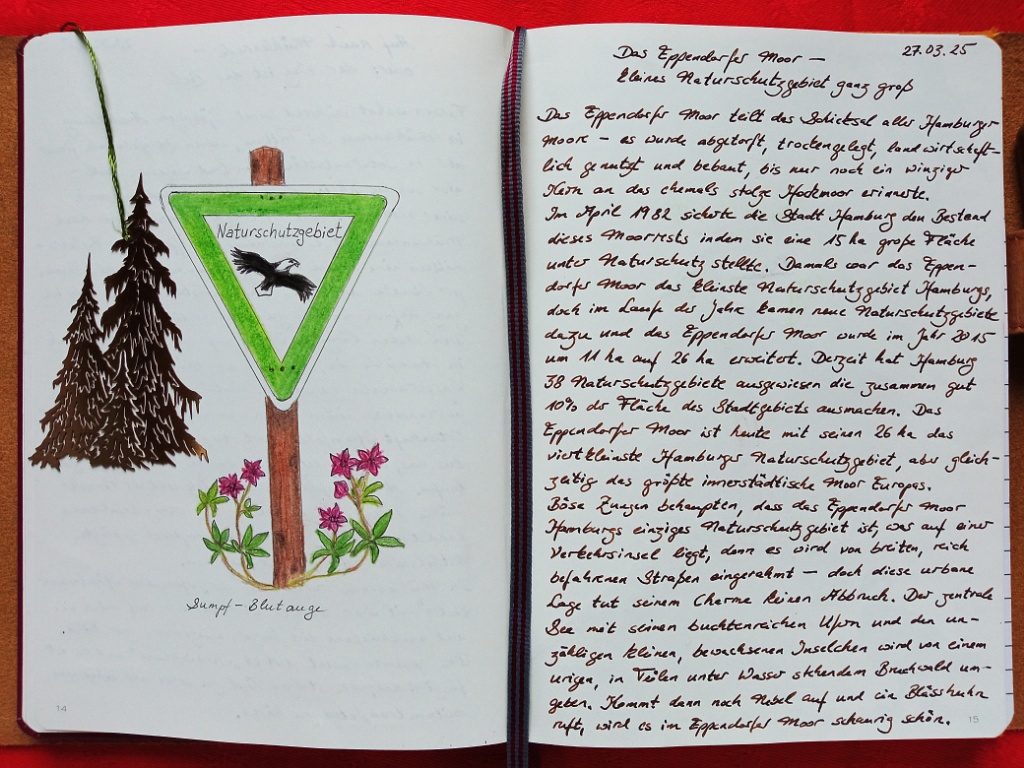 Naturschutzgebiet
Sumpf-Blutauge
14
27.03.25
Das Eppendorfer Moor —
kleines Naturschutzgebiet ganz groß
Das Eppendorfer Moor teilt das Schicksal aller Hamburger
Moore – es wurde abgetorft, trockengelegt, landwirtschaft-
lich genutzt und bebaut, bis nur noch ein winziger
Kern an das ehemals stolze Hochmoor erinnerte.
Im April 1982 sicherte die Stadt Hamburg den Bestand
dieses Moorrests indem sie eine 15 ha große Fläche
unter Naturschutz stellte. Damals war das Eppen-
dorfer Moor das kleinste Naturschutzgebiet Hamburgs,
doch im Laufe der Jahre kamen neue Naturschutzgebiete
dazu und das Eppendorfer Moor wurde im Jahr 2015
um 11 ha auf 26 ha erweitert. Derzeit hat Hamburg
38 Naturschutzgebiete ausgewiesen die zusammen gut
10% der Fläche des Stadtgebiets ausmachen. Das
Eppendorfer Moor ist heute mit seinen 26 ha das
viertkleinste Hamburger Naturschutzgebiet, aber gleich-
zeitig das größte innerstädtische Moor Europas.
Böse Zungen behaupten, dass das Eppendorfer Moor
Hamburgs einziges Naturschutzgebiet ist, was auf einer
Verkehrsinsel liegt, denn es wird von breiten, reich
befahrenen Straßen eingerahmt – doch diese urbane
Lage tut seinem Charme keinen Abbruch. Der zentrale
See mit seinen buchtenreichen Ufern und den un-
zähligen kleinen, bewachsenen Inselchen wird von einem
urigen, in Teilen unter Wasser stehendem Bruchwald um-
geben. Kommt dann noch Nebel auf und ein Blässhuhn
ruft, wird es im Eppendorfer Moor schaurig schön.
15